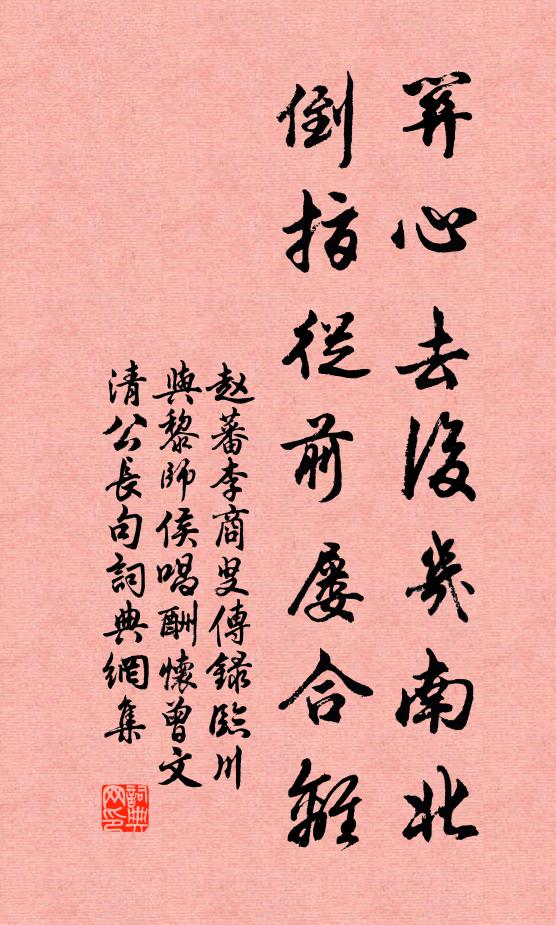 關心去後幾南北
倒指從前屡合離
赵蕃李商叟傳録臨川
與黎師侯唱酬懷曾文
清公長句詞典網集
詞典
网印